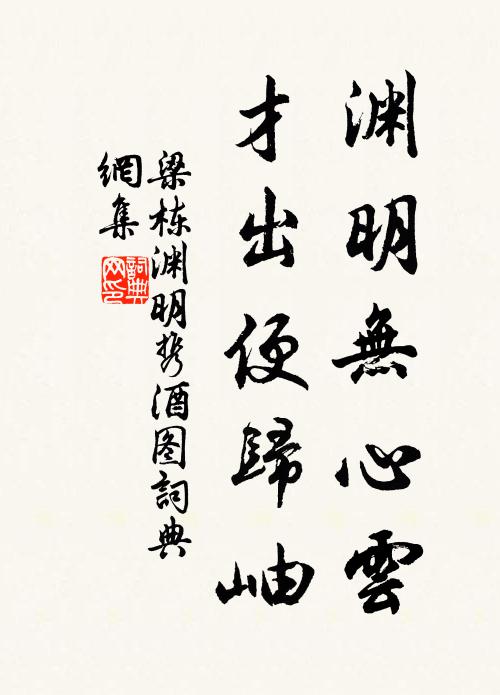 渊明無心雲
才出便歸岫
梁栋渊明携酒图詞典
網集
詞典
网印